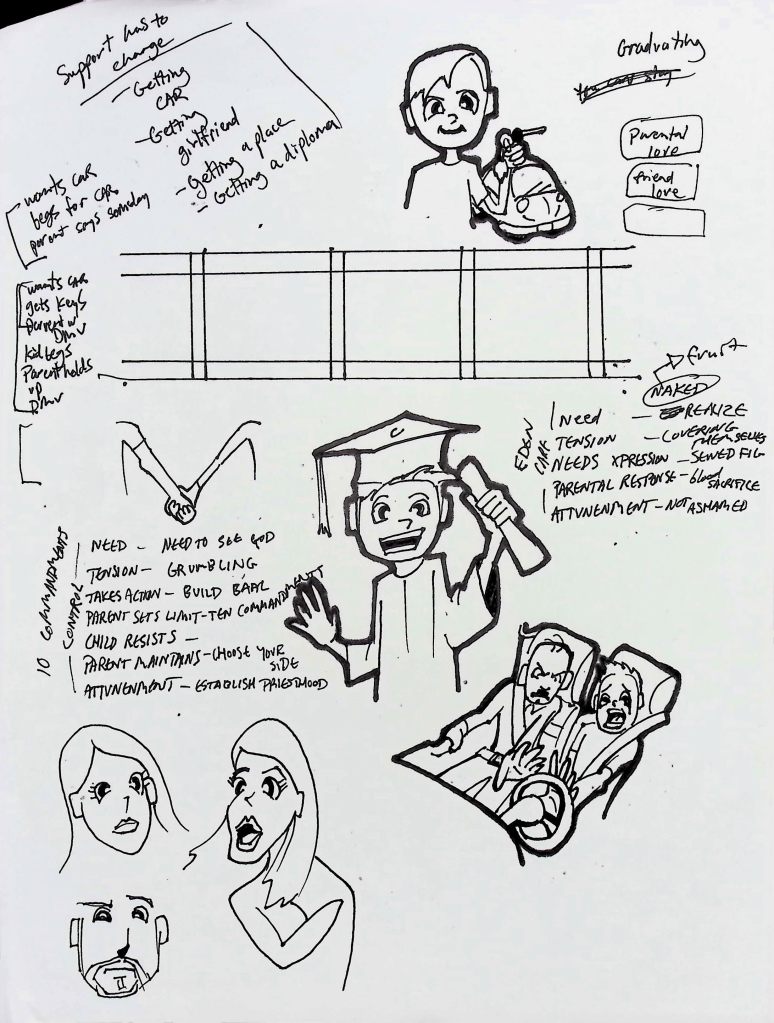 Support has to
change
- Getting
CAR
- Getting
girlfriend
- Getting a place
- Getting a diploma
Graduating
Parental
love
friend
love
wants car
begs for car
parent says someday
wants car
gets keys
parent w
DMV
kid begs
Parent holds
up
DMV
fruit
NAKED
EDEN
CARE
NEED — REALIZE
TENSION — COVERING
THEMSELVES
NEEDS XPRESSION — SEWED FIG
PARENTAL RESPONSE — blood
SACRIFICE
ATTUNENMENT — NOT ASHAMED
10 COMMANDMENTS
CONTROL
NEED — NEED TO SEE GOD
TENSION — GRUMBLING
TAKES ACTION — BUILD BAAL
PARENT SETS LIMIT — TEN COMMANDMENT
CHILD RESISTS —
PARENT MAINTAINS — CHOOSE YOUR
SIDE
ATTUNENMENT — ESTABLISH PRIESTHOOD